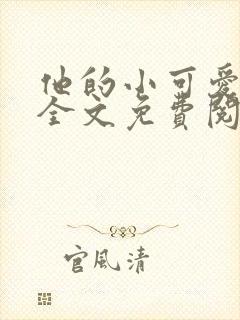 他的小可爱
全文免費阅
官風清